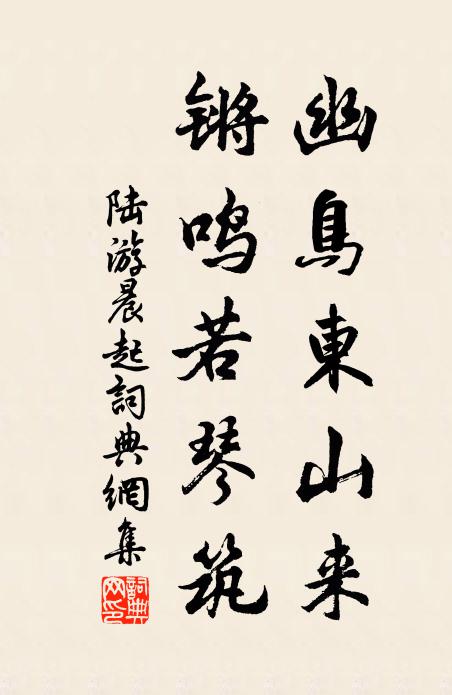 幽鳥東山来
锵鸣若琴筑
陆游晨起詞典網集
詞典网印